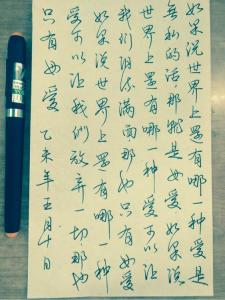 如果说世界上還有哪一种爱是
無私的话,那就是母爱如果说
世界上還有哪一种爱可以让
我们泪流满面,那也只有母爱
如果说世界上還有哪一种
爱可以让我們放弃一切,那也
只有母爱 乙未年五月十日